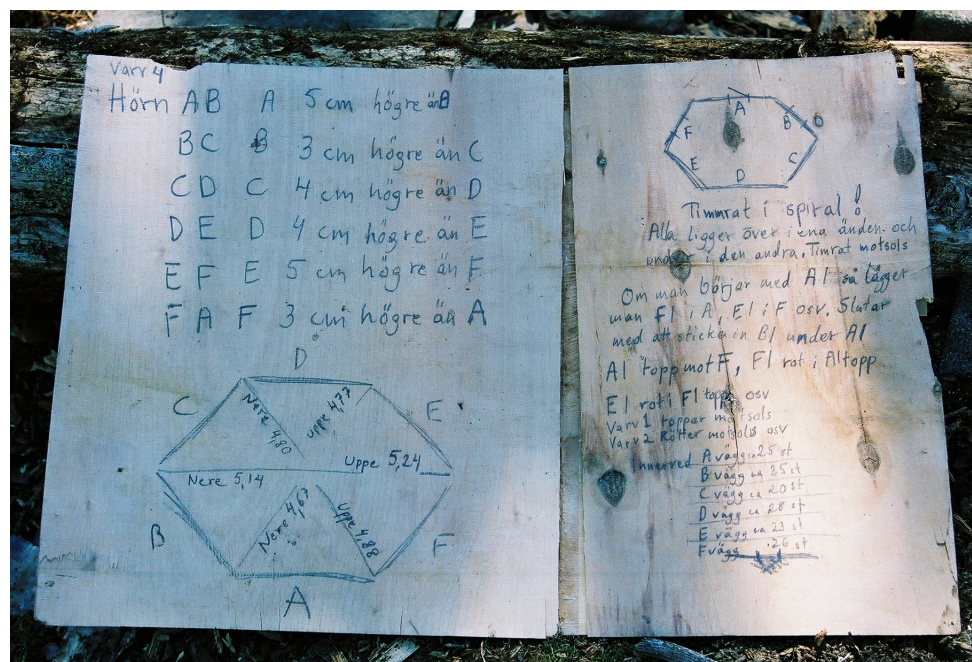 Varv 4
Hörn AB A 5 cm högre än B
BC B 3 cm högre än C
CD C 4 cm högre än D
DE D 4 cm högre än E
EF E 5 cm högre än F
FA F 3 cm högre än A
D
C
E
Nere 4,80
Uppe 4,77
Uppe 5,24
Nere 5,14
B
F
Nere 4,67
Uppe 4,88
A
A
B
F
E
C
D
Timmrat i spiral!
Alla ligger över i ena änden och
under i den andra. Timrat motsols
Om man börjar med A1 så lägger
man F1 i A, E1 i F osv. Slutar
med att sticka in B1 under A1
A1 topp mot F, F1 rot i A1 topp
E1 rot i F1 topp osv
Varv 1 toppar motsols
Varv 2 Rötter motsols osv
Innerved A vägg ca 25 st
B vägg ca 25 st
C vägg ca 20 st
D vägg ca 28 st
E vägg ca 23 st
F vägg 26 st